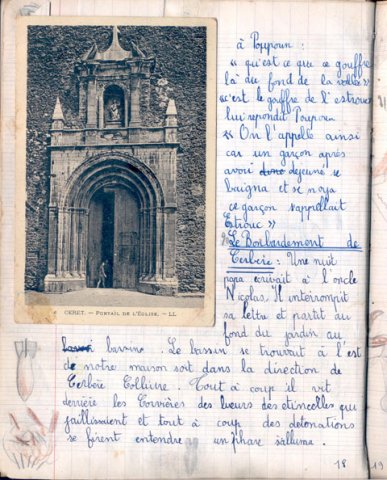 à Poupoun :
« qu'est ce que ce gouffre
là du fond de la vallée »
« c'est le gouffre de l'estrouc
lui répondit Poupou
« On l'appelle ainsi
car un garçon après
avoir dejeuné se
baigna et se noya
ce garçon s'appellait
Estrouc »
Le Bonbardement de
Cerbère : Une nuit
papa ecrivait à l'oncle
Nicolas, Il interrompit
sa lettre et partit au
fond du jardin au
CERET. — PORTAIL DE L'ÉGLISE. — LL
bassin. Le bassin se trouvait à l'est
de notre maison soit dans la direction de
Cerbère Collioure. Tout à coup il vit
derrière les Corvières des lueurs des etincelles qui
jaillissaient et tout à coup des détonations
se firent entendre un phare s'allume.
18 19